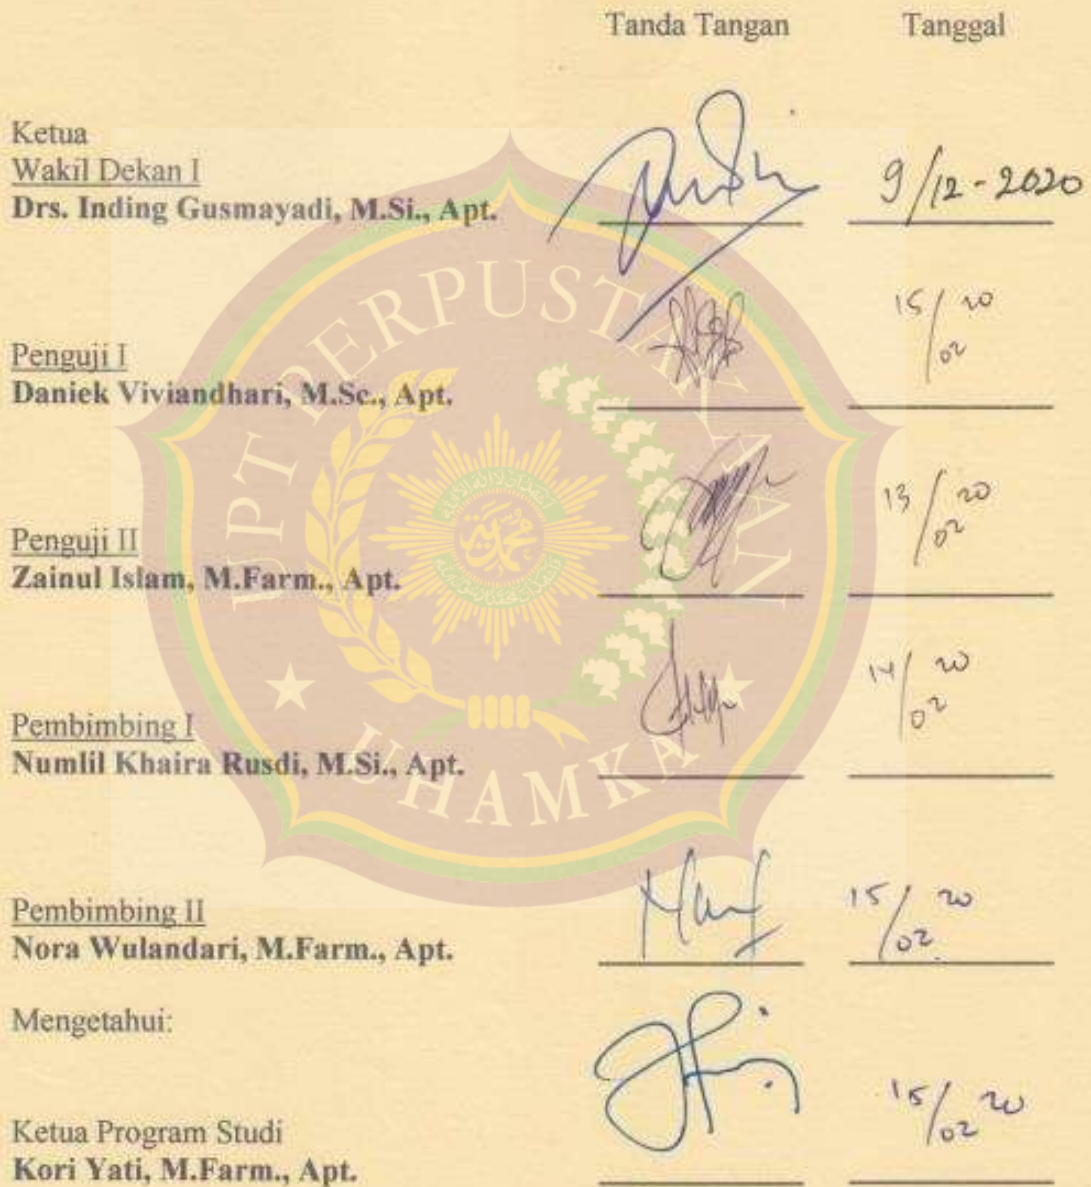 Tanda Tangan Tanggal
Ketua
Wakil Dekan I
Drs. Inding Gusmayadi, M.Si., Apt. 9/12-2020
Penguji I
Daniek Viviandhari, M.Sc., Apt. 15/02 20
Penguji II
Zainul Islam, M.Farm., Apt. 13/02 20
Pembimbing I
Numlil Khaira Rusdi, M.Si., Apt. 14/02 20
Pembimbing II
Nora Wulandari, M.Farm., Apt. 15/02 20
Mengetahui:
Ketua Program Studi
Kori Yati, M.Farm., Apt. 15/02 20
UPT PERPUSTAKAAN
UHAMKA